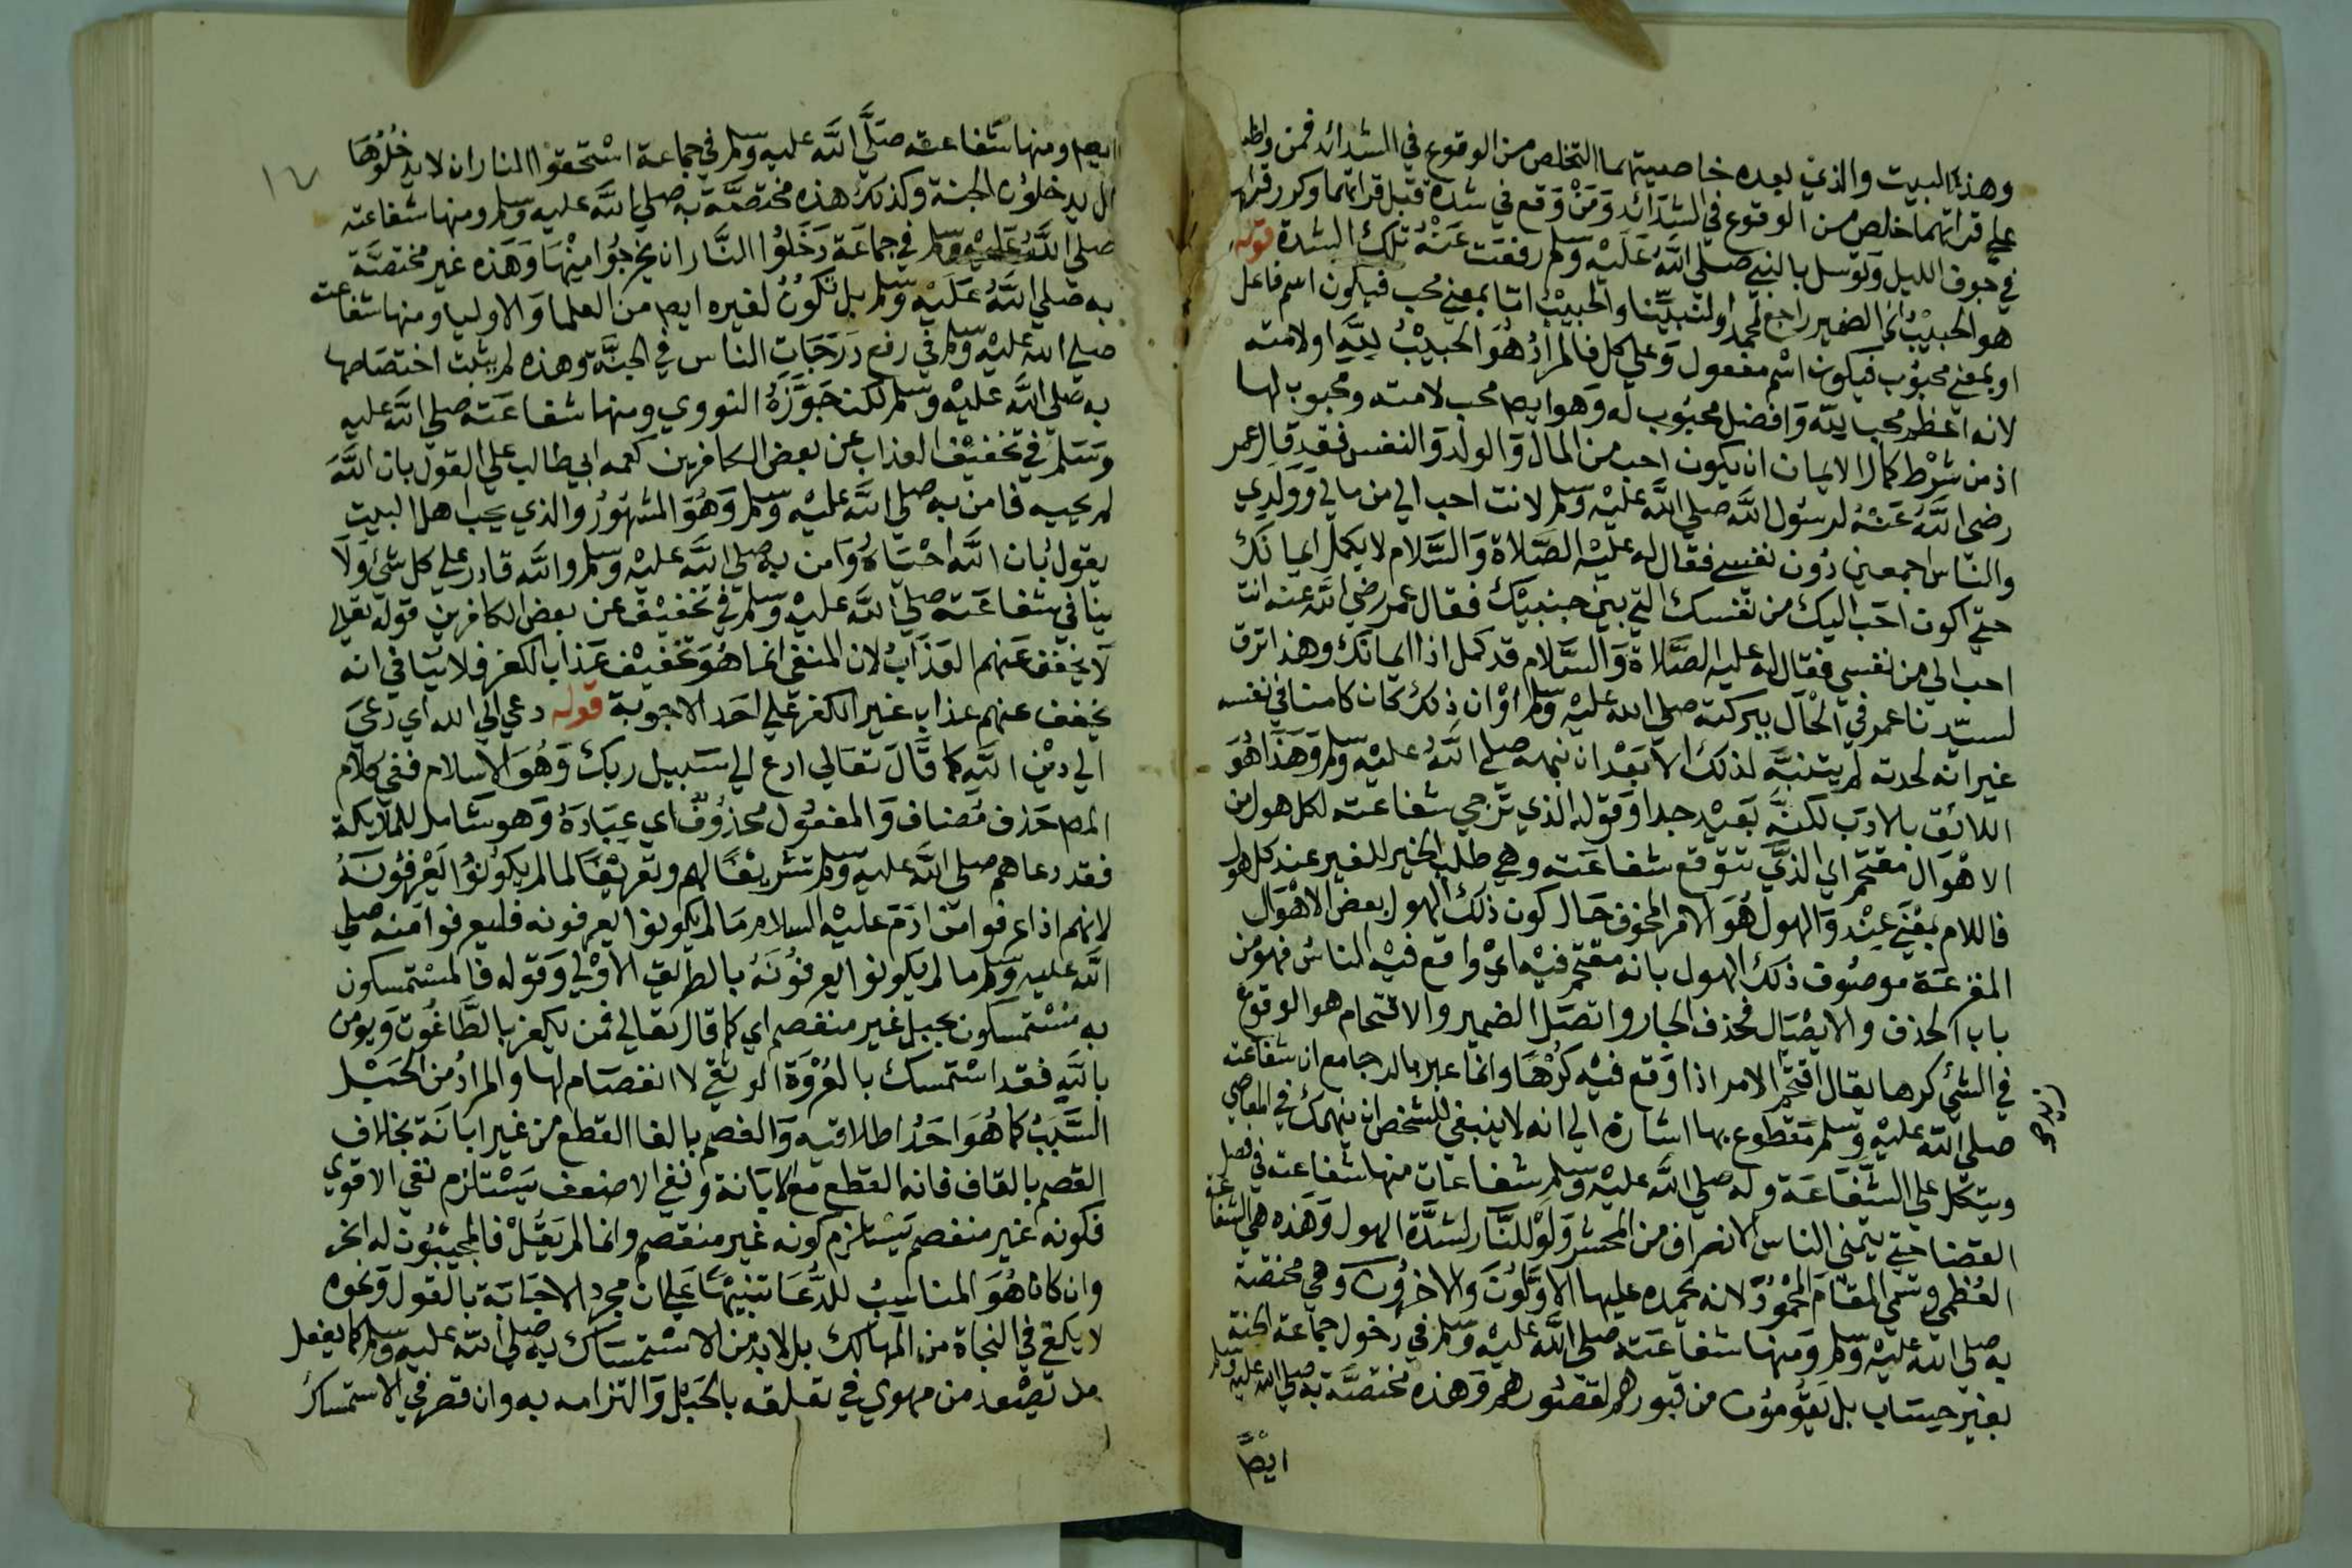 وهذا البيت والذي بعده خاصيتهما التخلص من الوقوع في الشدائد فمن واظب
علي قراتهما خلص من الوقوع في الشدائد ومن وقع في شدة قبل قراتهما وكرر قراتهما
في جوف الليل وتوسل بالنبي صلي الله عليه وسلم رفعت عنه تلك الشدة قوله
هو الحبيب الخ الضمير راجع لمحمد او لنبينا والحبيب اما بمعني محب فيكون اسم فاعل
او بمعني محبوب فيكون اسم مفعول وعلي كل فالمراد هو الحبيب لله او لامته
لانه اعظم محب لله وافضل محبوب له وهو ايض محب لامته ومحبوب لها
اذ من شرط كمال الايمان ان يكون احب من المال والولد والنفس فقد قال عمر
رضي الله عنه لرسول الله صلي الله عليه وسلم لانت احب الي من مالي وولدي
والناس اجمعين دون نفسي فقال له عليه الصلاة والسلام لا يكمل ايمانك
حتي اكون احب اليك من نفسك التي بين جنبيك فقال عمر رضي الله عنه انت
احب الي من نفسي فقال له عليه الصلاة والسلام قد كمل اذا ايمانك وهذا ترق
لسيدنا عمر في الحال ببركته صلي الله عليه وسلم او ان ذلك كان كامنا في نفسه
غير انه لحدته لم يتنبه لذلك الا بعد ان نبهه صلي الله عليه وسلم وهذا هو
اللائق بالادب لكنه بعيد جدا وقوله الذي ترجي شفاعته لكل هول من
الاهوال مقتحم اي الذي تتوقع شفاعته وهي طلب الخير للغير عند كل هول
فاللام بمعني عند والهول هو الامر المخوف حال كون ذلك الهول بعض الاهوال
المفزعة موصوف ذلك الهول بانه مقتحم فيه اي واقع فيه الناس فهو من
باب الحذف والايصال فحذف الجار واتصل الضمير والاقتحام هو الوقوع
في الشي كرها يقال اقتحم الامر اذا وقع فيه كرها وانما عبر بالرجا مع ان شفاعته
صلي الله عليه وسلم مقطوع بها اشارة الي انه لا ينبغي للشخص ان ينهمك في المعاصي
ويتكل علي الشفاعة وله صلي الله عليه وسلم شفاعات منها شفاعته في فصل
القضا حتي يتمني الناس الانصراف من المحشر ولو للنار لشدة الهول وهذه هي الشفاعة
العظمي وتسمي المقام المحمود لانه يحمده عليها الاولون والاخرون وهي مختصة
به صلي الله عليه وسلم ومنها شفاعته صلي الله عليه وسلم في دخول جماعة الجنة
بغير حساب بل يقومون من قبورهم لقصورهم وهذه مختصة به صلي الله عليه وسلم
ايضا
ايض ومنها شفاعته صلي الله عليه وسلم في جماعة استحقوا النار ان لا يدخلوها
بل يدخلون الجنة وكذلك هذه مختصة به صلي الله عليه وسلم ومنها شفاعته
صلي الله عليه وسلم في جماعة دخلوا النار ان يخرجوا منها وهذه غير مختصة
به صلي الله عليه وسلم بل تكون لغيره ايض من العلما والاوليا ومنها شفاعته
صلي الله عليه وسلم في رفع درجات الناس في الجنة وهذه لم يثبت اختصاصها
به صلي الله عليه وسلم لكن جوزه النووي ومنها شفاعته صلي الله عليه
وسلم في تخفيف العذاب عن بعض الكافرين كعمه ابي طالب علي القول بان الله
لم يحييه فامن به صلي الله عليه وسلم وهو المشهور والذي يحب اهل البيت
يقول بان الله احياه وامن به صلي الله عليه وسلم والله قادر علي كل شي ولا
ينافي شفاعته صلي الله عليه وسلم في تخفيف عن بعض الكافرين قوله تعالي
لا يخفف عنهم العذاب لان المنفي انما هو تخفيف عذاب الكفر فلا ينافي انه
يخفف عنهم عذاب غير الكفر علي احد الاجوبة قوله دعي الي الله اي دعي
الي دين الله كما قال تعالي ادع الي سبيل ربك وهو الاسلام ففي كلام
المص حذف مضاف والمفعول محذوف اي عباده وهو شامل للملايكة
فقد دعاهم صلي الله عليه وسلم تشريفا لهم وتعريفا لما لم يكونوا يعرفونه
لانهم اذا عرفوا من ادم عليه السلام ما لم يكونوا يعرفونه فليعرفوا منه صلي
الله عليه وسلم ما لم يكونوا يعرفونه بالطريق الاولي وقوله فالمستمسكون
به مستمسكون بحبل غير منفصم اي كما قال تعالي فمن يكفر بالطاغوت ويومن
بالله فقد استمسك بالعروة الوثقي لا انفصام لها والمراد من الحبل
السبب كما هو احد اطلاقيه والفصم بالفا القطع من غير ابانة بخلاف
القصم بالقاف فانه القطع مع الابانة ونفي الاضعف يستلزم نفي الاقوي
فكونه غير منفصم يستلزم كونه غير منقصم وانما لم يقل فالمجيبون له الخ
وان كان هو المناسب للدعا تنبيها علي ان مجرد الاجابة بالقول ونحوه
لا يكفي في النجاة من المهالك بل لا بد من الاستمساك به صلي الله عليه وسلم كما يفعل
من تصعد من مهوي في تعلقه بالحبل والتزامه به وان قصر في الاستمساك